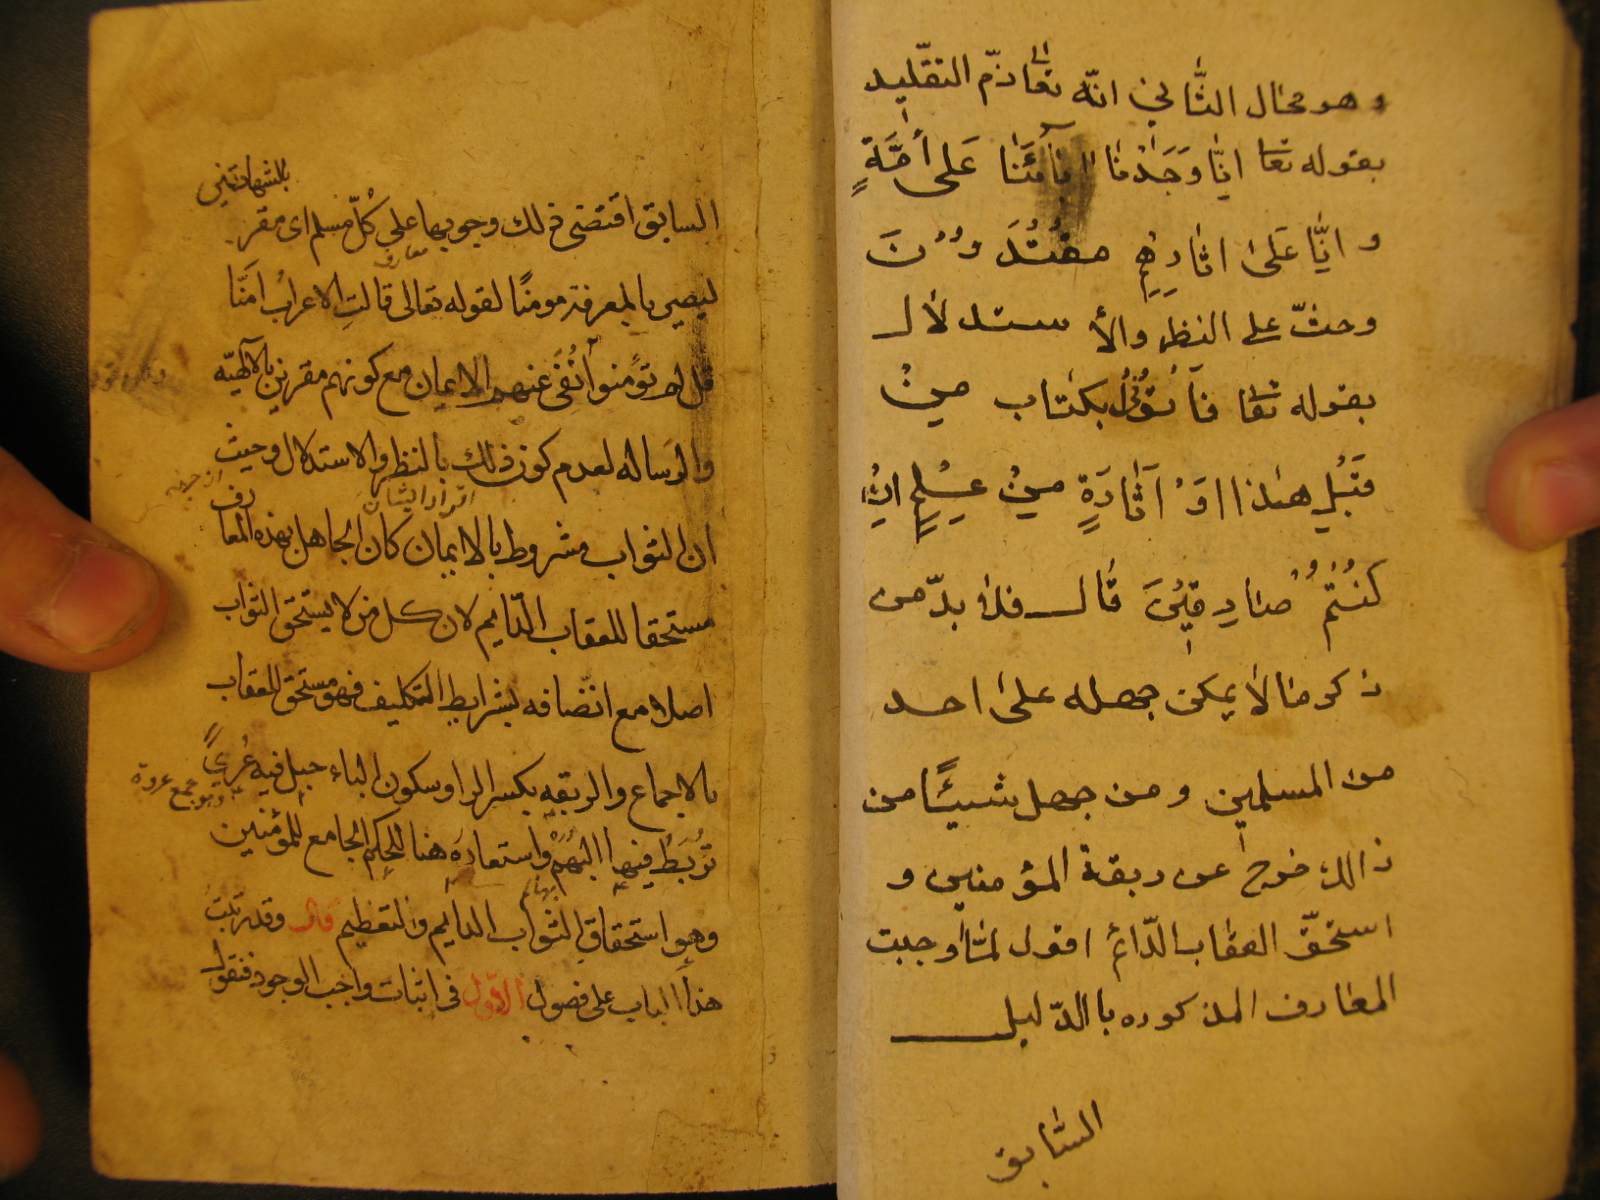 وهو محال الثّاني انّه تعالى ذمّ التقليد
بقوله تعا انّا وَجَدْنا اباۤئَنا عَلى اُمَّةٍ
و انّا عَلىٰ اثارِهِمْ مقْتُدَوُنَ
وحثّ على النظر والأستدلال
بقوله تعا فأتوني بكتاب مِنْ
قَبْلِ هٰذا اوَْ اَثارَةٍ مِنْ عِلْمٍ انْ
كنْتُمْ صادِقيٖنَ قال فلا بدّ من
ذكر ما لا يمكن جهله على احد
من المسلمين ومن جهل شيئًا من
ذالك خرج عن ربقة المؤمنين و
استحقّ العقاب الدّائم اقول لمّا وجبت
المعارف المذكوره بالدّليل
السّابق
بالشهادتين
السابق اقتضى ذلك وجوبها على كُلّ مسلم اى مقر
ليصير بالمعرفة مومنًا لقوله تعالى قالتِ الاعرابُ اٰمَنّا
قل لم تؤمنوا نُفَى عنهم الايمان مع كونهم مقرين بالالهيّه
والرساله لعدم كون ذلك بالنظر والاستدلال وحيث
ان الثواب مشروط بالايمان كان الجاهل بهذه المعا
رف
مستحقا للعقاب الدّايم لان كل من لا يستحق الثواب
اصلا مع اتّصافه بشرايط التكليف فهو مستحق للعقاب
بالاجماع والربقه بكسر الرا وسكون الباء حبل فيه عُرىً
وهو جمع عروة
تُربَطُ فيها البَهْمُ واستعاره هنا للحكم الجامع للمؤمنين
بهايم
وهو استحقاق الثواب الدايم والتعظيم قال وقد رتبت
هذا الباب على فصول الأوّل فى اثبات واجب الوجود فنقول